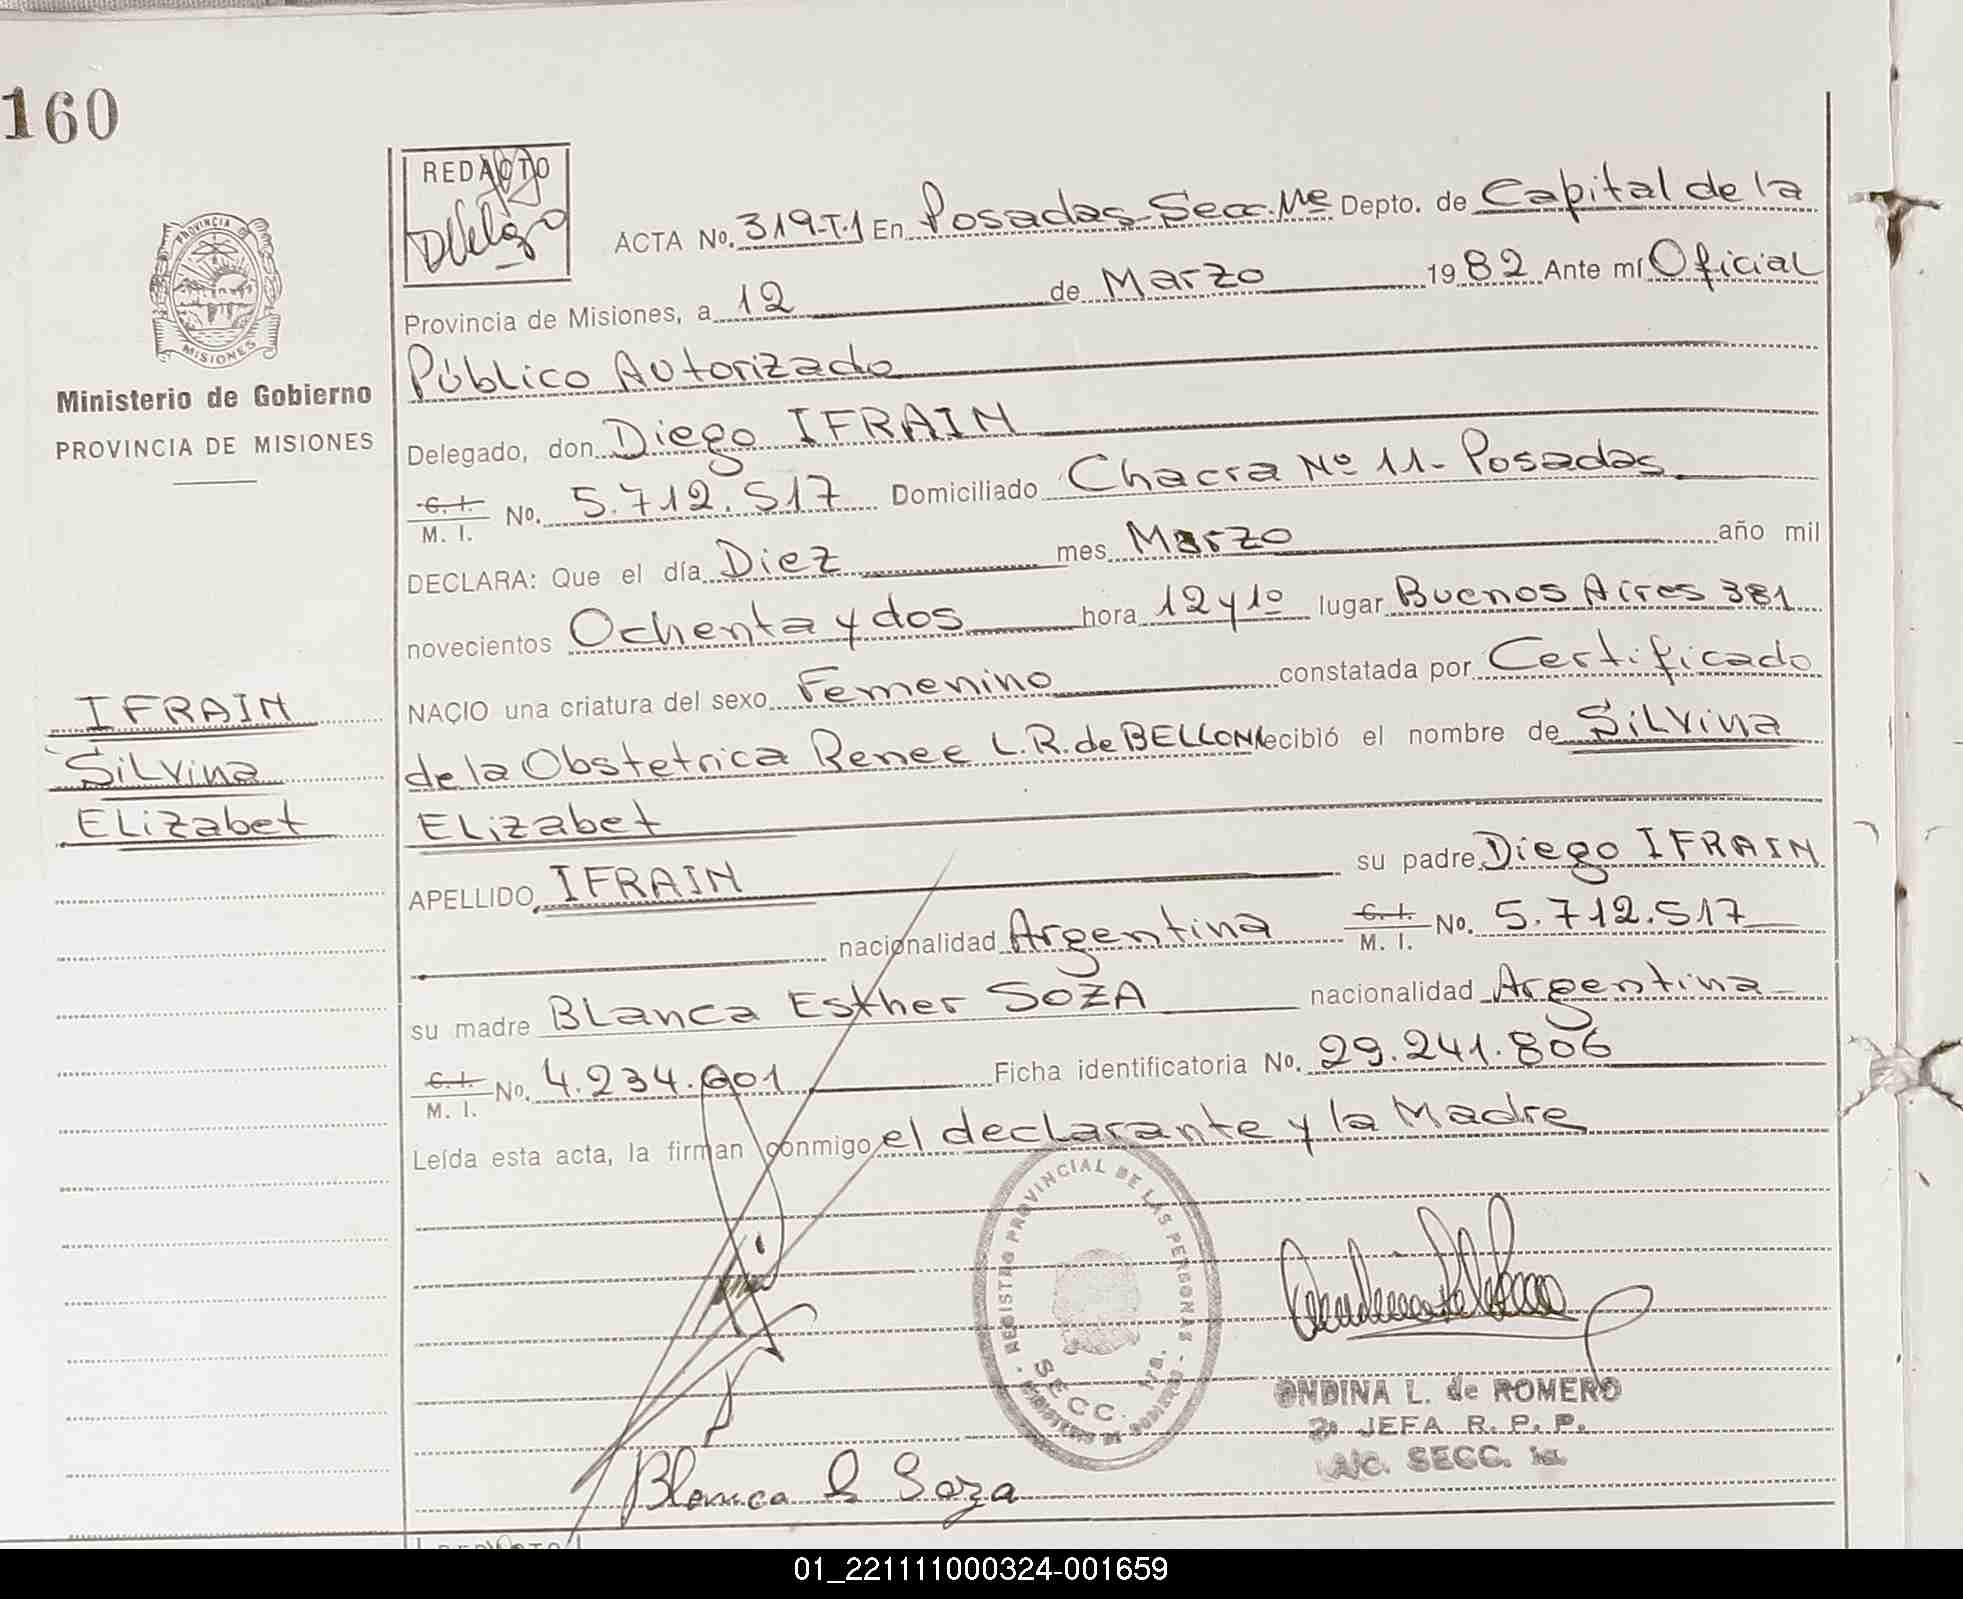 160
REDACTO
PROVINCIA DE
MISIONES
Ministerio de Gobierno
PROVINCIA DE MISIONES
ACTA No. 319-T.1 En Posadas-Secc.Mª Depto. de Capital de la
Provincia de Misiones, a 12 de Marzo 1982 Ante mí Oficial
Público Autorizado
Delegado, don Diego IFRAIN
C. I. M. I. No. 5.712.517 Domiciliado Chacra Nº 11- Posadas
DECLARA: Que el día Diez mes Marzo año mil
novecientos Ochenta y dos hora 12 y 10 lugar Buenos Aires 381
NACIO una criatura del sexo Femenino constatada por Certificado
de la Obstetrica Renee L.R. de BELLONI recibió el nombre de Silvina
Elizabet
APELLIDO IFRAIN su padre Diego IFRAIN
nacionalidad Argentina C. I. M. I. No. 5.712.517
su madre Blanca Esther SOZA nacionalidad Argentina
C. I. M. I. No. 4.234.001 Ficha identificatoria No. 29.241.806
Leída esta acta, la firman conmigo el declarante y la Madre
IFRAIN
Silvina
Elizabet
REGISTRO PROVINCIAL DE LAS PERSONAS
SECC. 1ra.
MINISTERIO DE GOBIERNO
ONDINA L. de ROMERO
2º JEFA R. P. P.
A/C. SECC. 1a.
Blanca E Soza
REDACTO
01_221111000324-001659